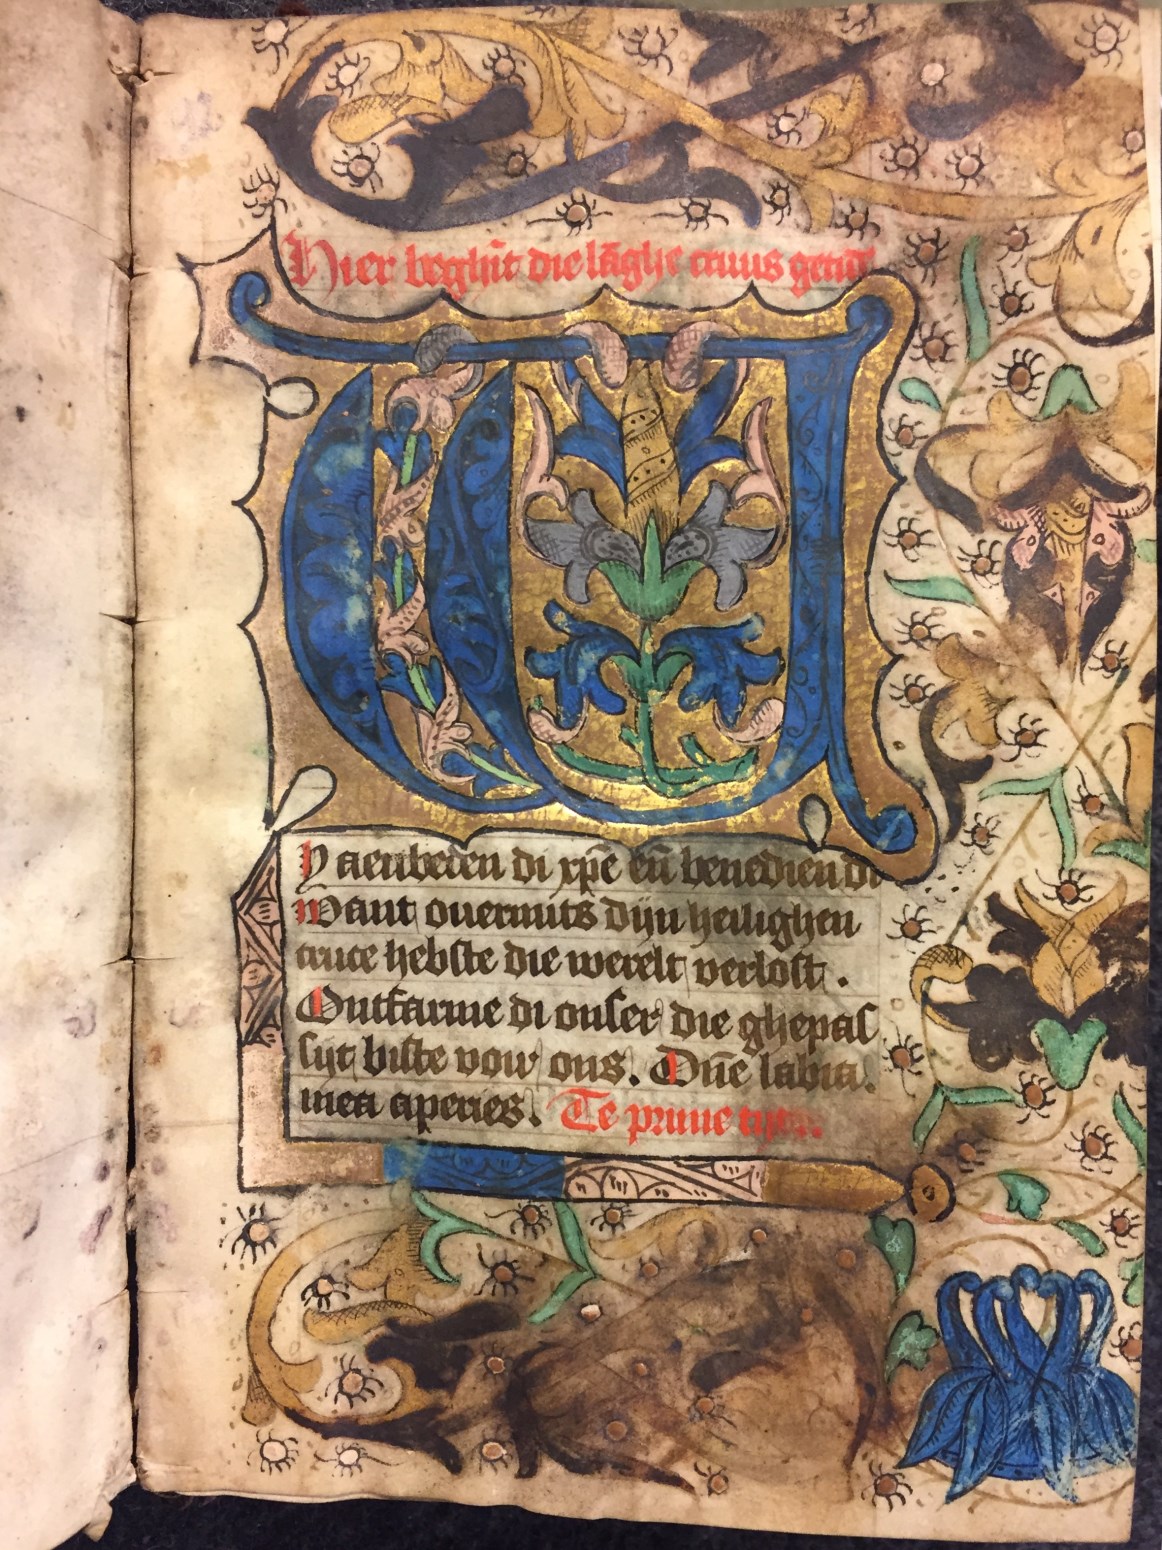 Hier beghīt die lāghe cruus getide
W
y aenbeden di xp̄e en̄ benedien di
Want ouermits dijn heilighen
cruce hebste die werelt verlost .
Ontfarme di onser die ghepas
sijt biste voir ons. Dn̄e labia.
mea aperies. Te prime tijt